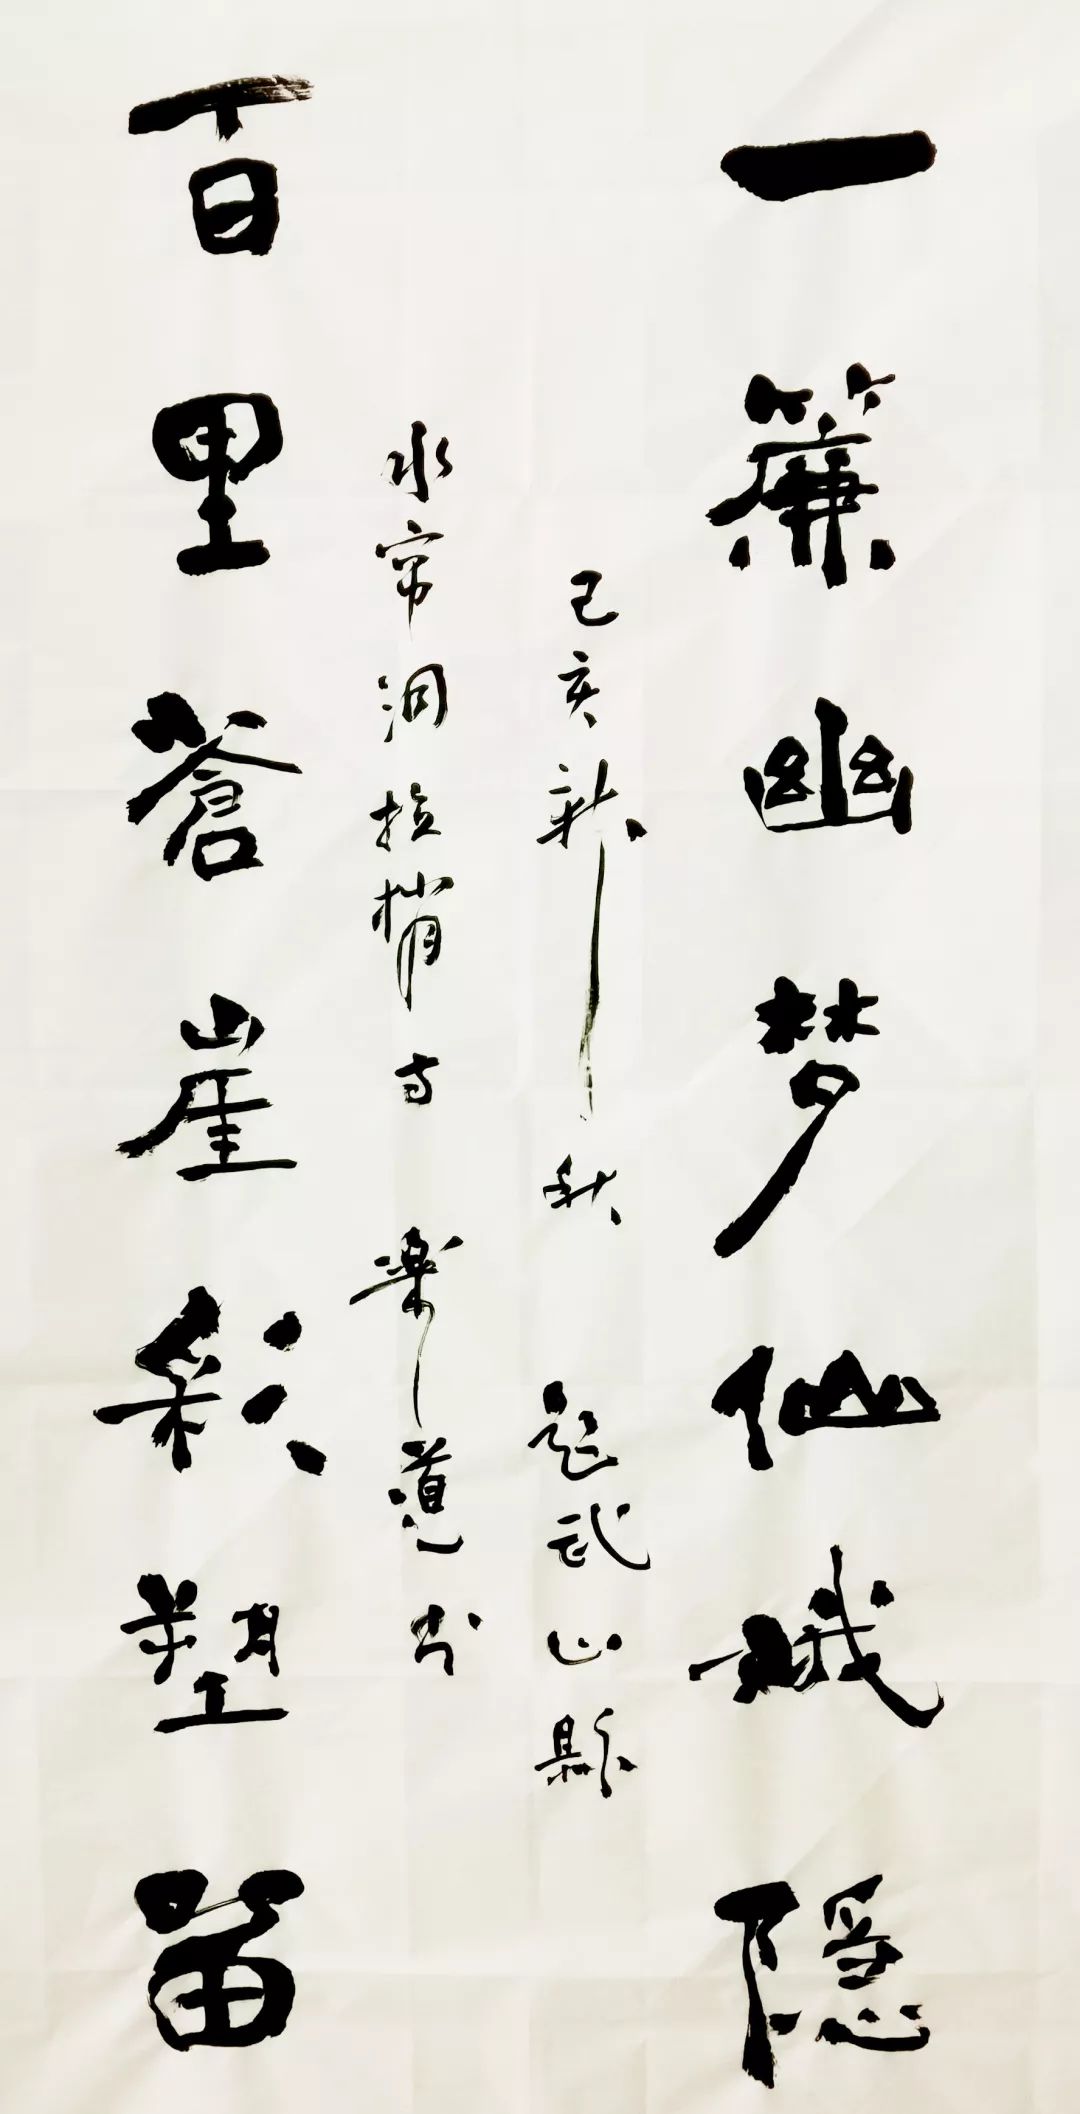 一簾幽梦仙娥隐
己亥新秋 题武山縣
水帘洞拉梢寺 樂道书
百里蒼崖彩塑留